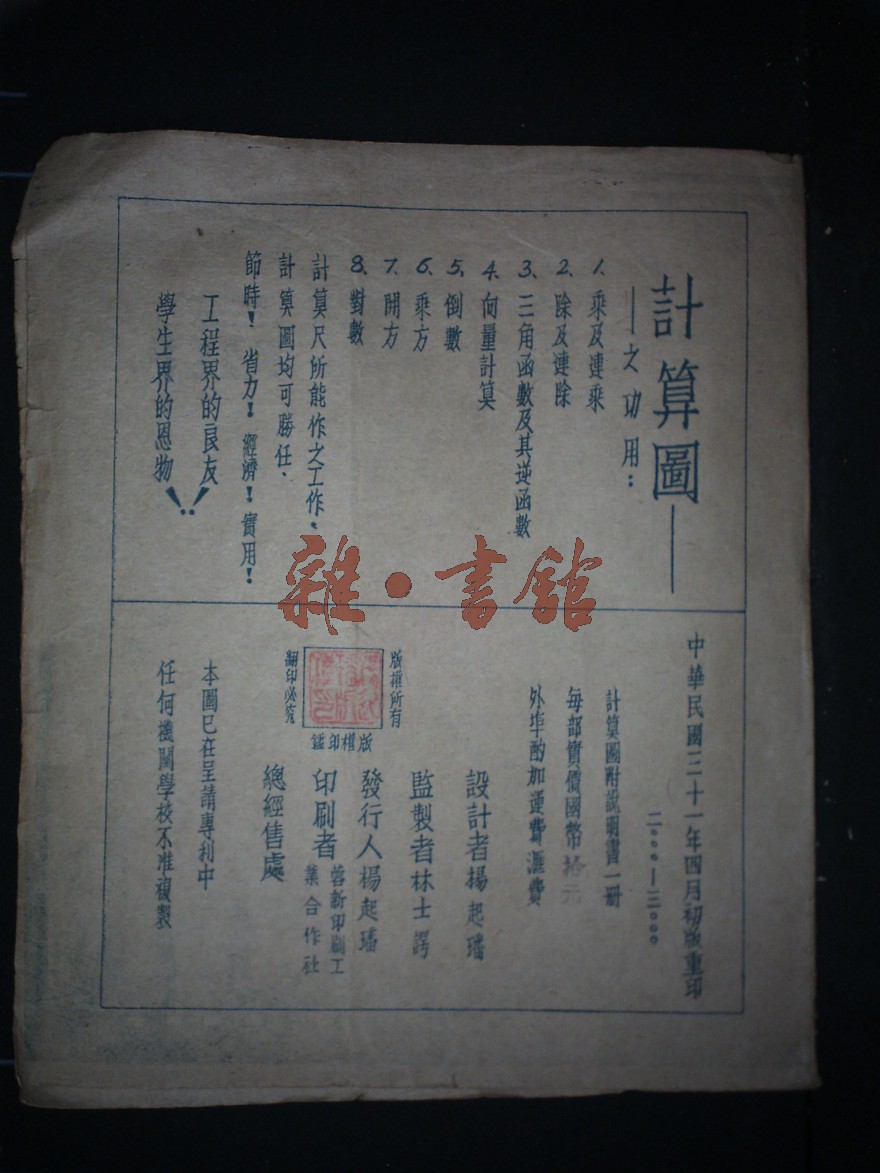 計算圖——
——之功用：
1. 乘及連乘
2. 除及連除
3. 三角函數及其逆函數
4. 向量計算
5. 倒數
6. 乘方
7. 開方
8. 對數
計算尺所能作之工作、
計算圖均可勝任、
節時！省力！經濟！實用！
工程界的良友
學生界的恩物！！
中華民國三十一年四月初版重印
二〇〇〇—三〇〇〇
計算圖附說明書一冊
每部實價國幣拾元
外埠酌加運費滙費
設計者楊起璠
監製者林士諤
發行人楊起璠
版權所有
翻印必究
版權印鑑
印刷者
蓉新印刷工
業合作社
總經售處
本圖已在呈請專利中
任何機關學校不准複製
雜·書館